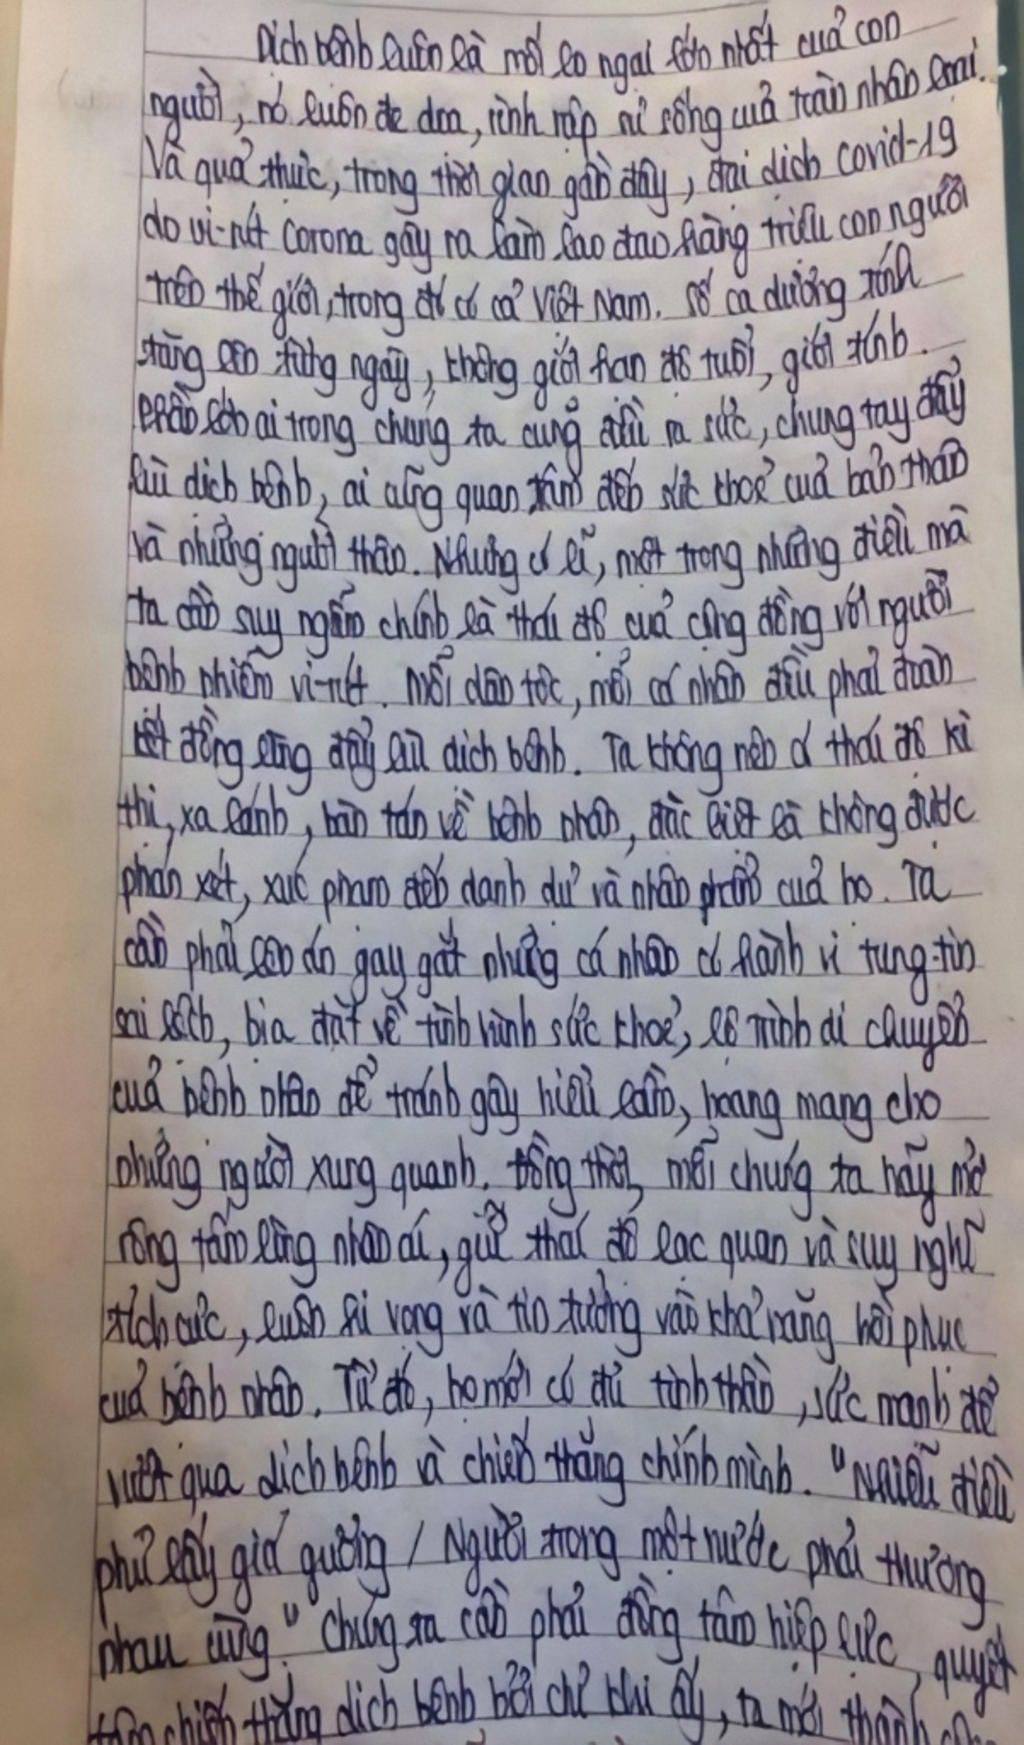 Dịch bệnh luôn là mối lo ngại lớn nhất của con
người, nó luôn đe dọa, rình rập sự sống của toàn nhân loại.
Và quả thực, trong thời gian gần đây, đại dịch covid-19
do vi-rút Corona gây ra làm lao đao hàng triệu con người
trên thế giới, trong đó có cả Việt Nam. Số ca dương tính
tăng lên từng ngày, không giới hạn độ tuổi, giới tính.
Phần lớn ai trong chúng ta cũng đều ra sức, chung tay đẩy
lùi dịch bệnh, ai cũng quan tâm đến sức khoẻ của bản thân
và những người thân. Nhưng có lẽ, một trong những điều mà
ta cần suy ngẫm chính là thái độ của cộng đồng với người
bệnh nhiễm vi-rút. Mỗi dân tộc, mỗi cá nhân đều phải đoàn
kết đồng lòng đẩy lùi dịch bệnh. Ta không nên có thái độ kì
thị, xa lánh, bàn tán về bệnh nhân, đặc biệt là không được
phán xét, xúc phạm đến danh dự và nhân phẩm của họ. Ta
cần phải lên án gay gắt những cá nhân có hành vi tung tin
sai lệch, bịa đặt về tình hình sức khoẻ, lộ trình di chuyển
của bệnh nhân để tránh gây hiểu lầm, hoang mang cho
những người xung quanh. Đồng thời, mỗi chúng ta hãy mở
rộng tấm lòng nhân ái, giữ thái độ lạc quan và suy nghĩ
tích cực, luôn hi vọng và tin tưởng vào khả năng hồi phục
của bệnh nhân. Từ đó, họ mới có đủ tinh thần, sức mạnh để
vượt qua dịch bệnh và chiến thắng chính mình. "Nhiễu điều
phủ lấy giá gương / Người trong một nước phải thương
nhau cùng". Chúng ta cần phải đồng tâm hiệp lực, quyết
tâm chiến thắng dịch bệnh bởi chỉ khi ấy, ta mới thành